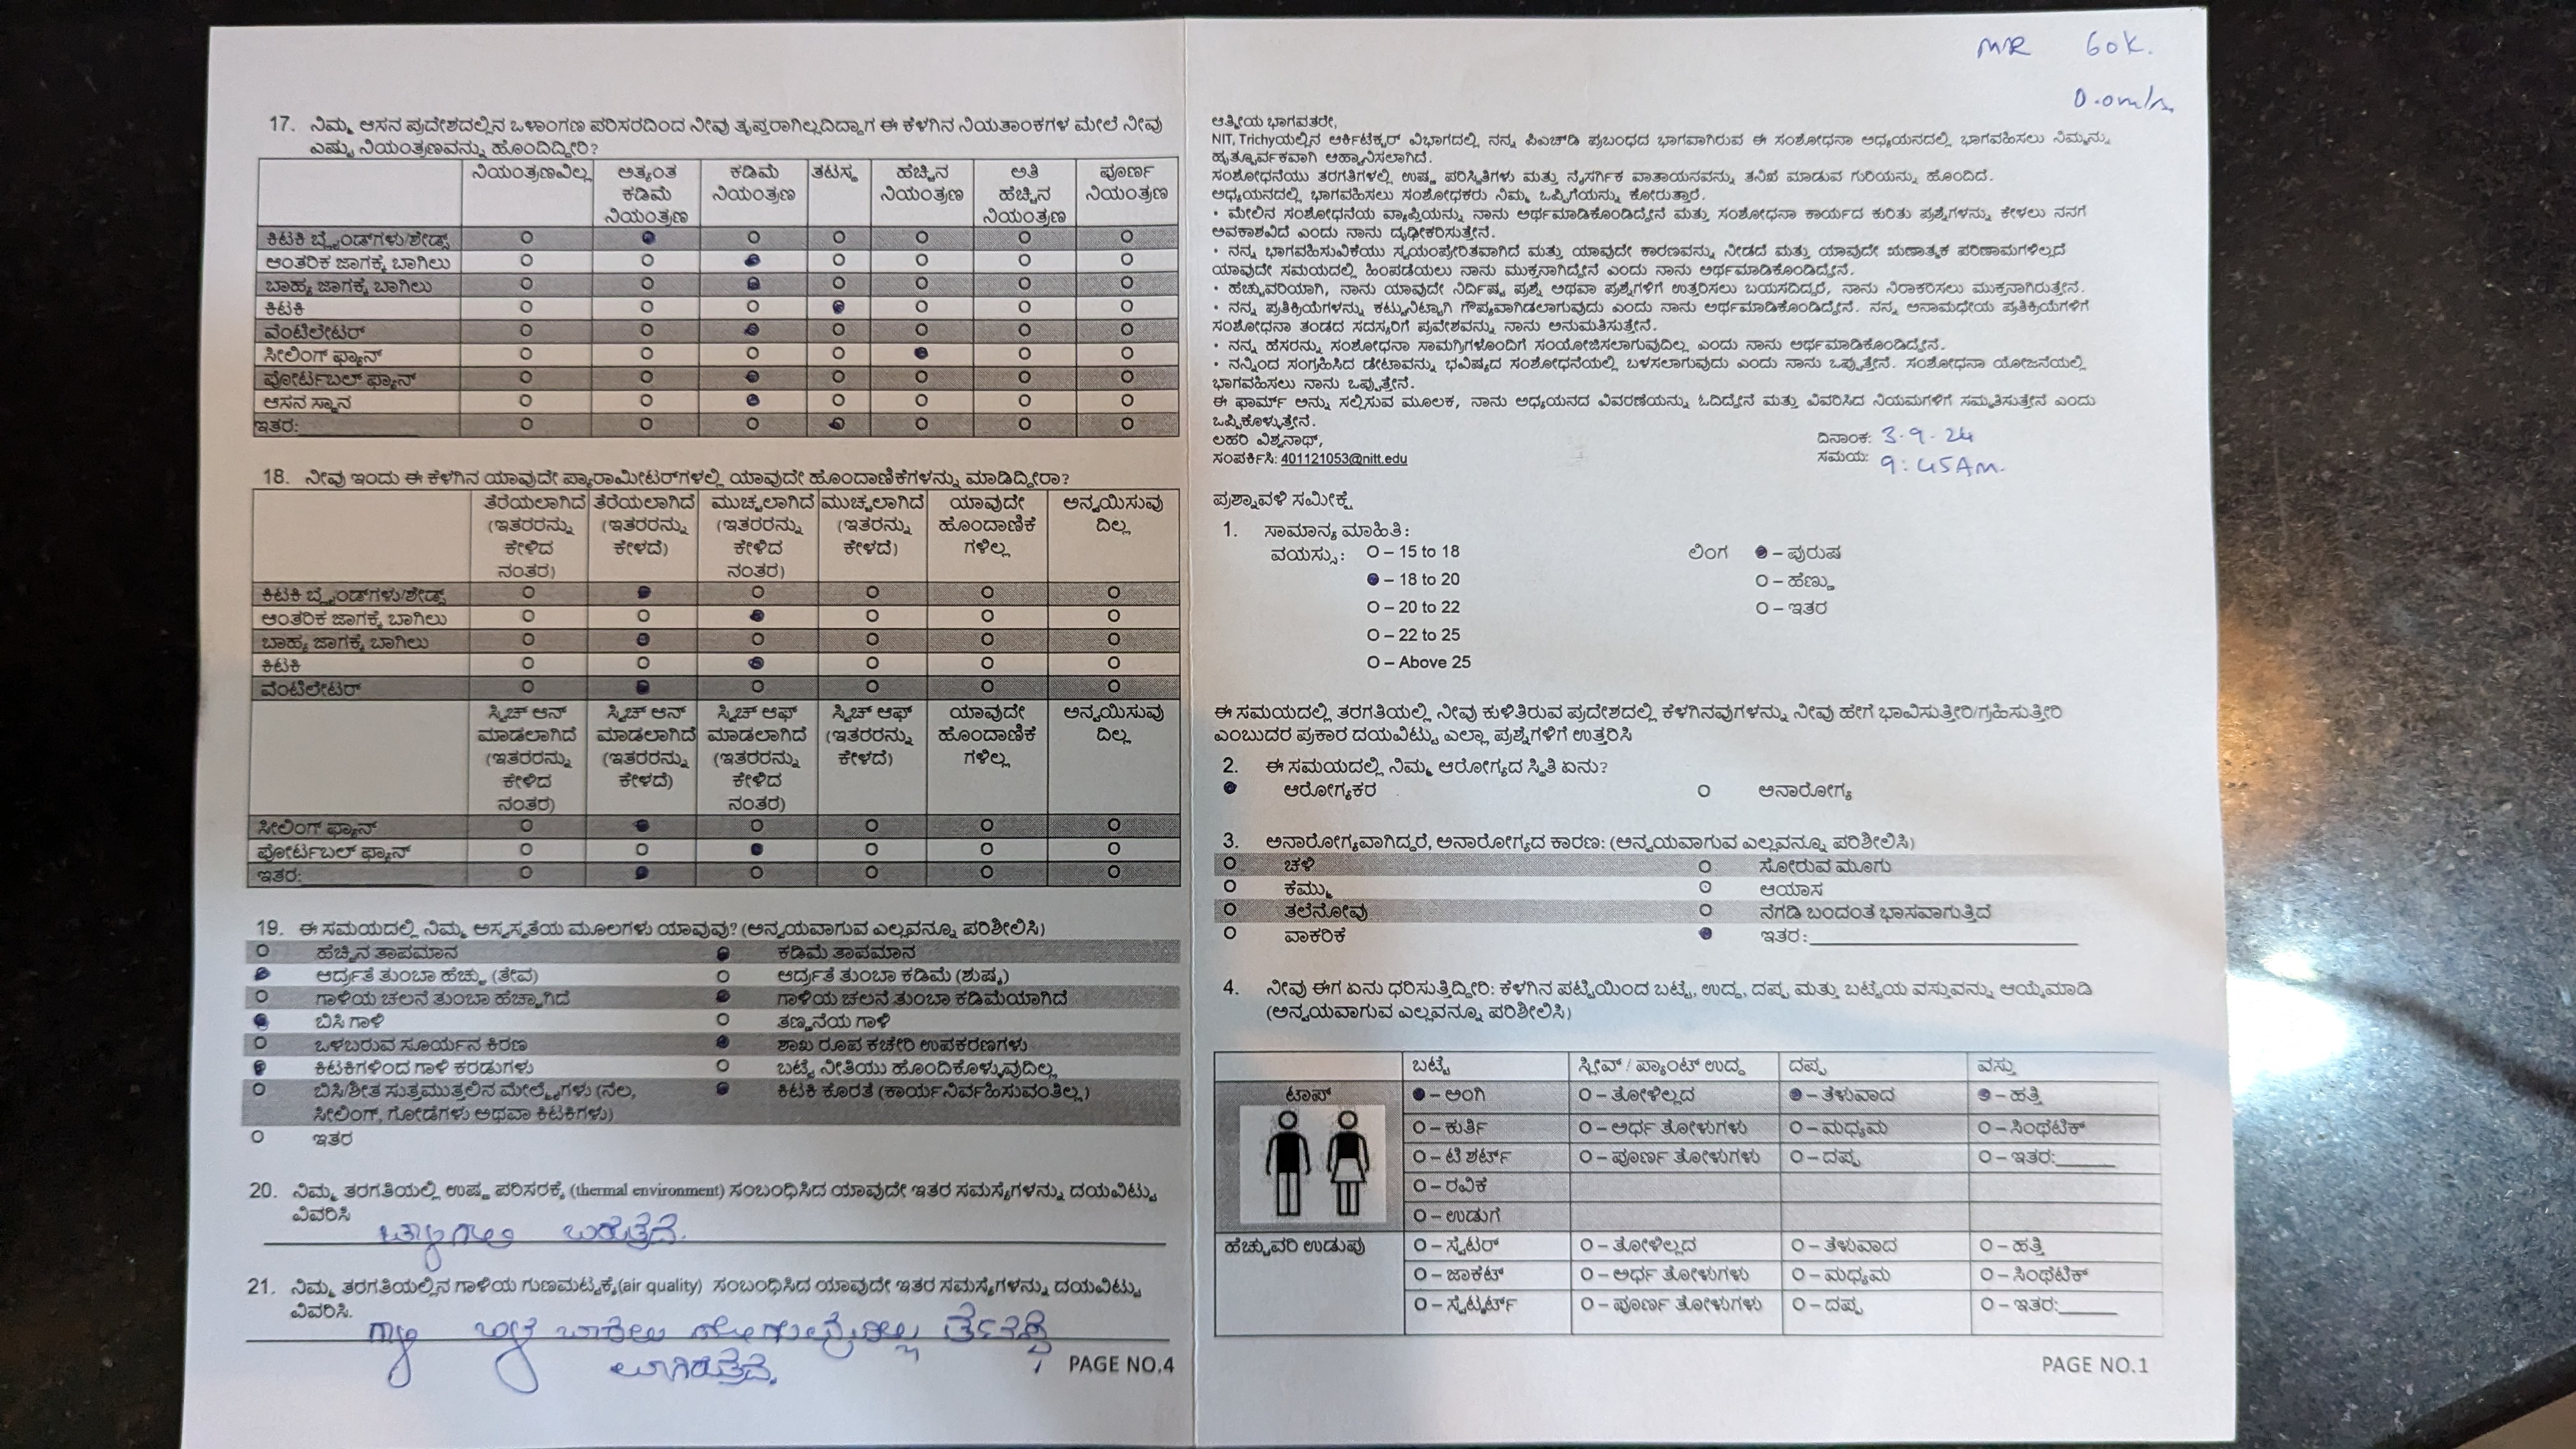 17. ನಿಮ್ಮ ಆಸನ ಪ್ರದೇಶದಲ್ಲಿನ ಒಳಾಂಗಣ ಪರಿಸರದಿಂದ ನೀವು ತೃಪ್ತರಾಗಿಲ್ಲದಿದ್ದಾಗ ಈ ಕೆಳಗಿನ ನಿಯತಾಂಕಗಳ ಮೇಲೆ ನೀವು
ಎಷ್ಟು ನಿಯಂತ್ರಣವನ್ನು ಹೊಂದಿದ್ದೀರಿ?
ನಿಯಂತ್ರಣವಿಲ್ಲ ಅತ್ಯಂತ ಕಡಿಮೆ ನಿಯಂತ್ರಣ ಕಡಿಮೆ ನಿಯಂತ್ರಣ ತಟಸ್ಥ ಹೆಚ್ಚಿನ ನಿಯಂತ್ರಣ ಅತಿ ಹೆಚ್ಚಿನ ನಿಯಂತ್ರಣ ಪೂರ್ಣ ನಿಯಂತ್ರಣ
ಕಿಟಕಿ ಬ್ಲೈಂಡ್‌ಗಳು/ಶೇಡ್ಸ್
ಆಂತರಿಕ ಜಾಗಕ್ಕೆ ಬಾಗಿಲು
ಬಾಹ್ಯ ಜಾಗಕ್ಕೆ ಬಾಗಿಲು
ಕಿಟಕಿ
ವೆಂಟಿಲೇಟರ್
ಸೀಲಿಂಗ್ ಫ್ಯಾನ್
ಪೋರ್ಟಬಲ್ ಫ್ಯಾನ್
ಆಸನ ಸ್ಥಾನ
ಇತರ:
18. ನೀವು ಇಂದು ಈ ಕೆಳಗಿನ ಯಾವುದೇ ಪ್ಯಾರಾಮೀಟರ್‌ಗಳಲ್ಲಿ ಯಾವುದೇ ಹೊಂದಾಣಿಕೆಗಳನ್ನು ಮಾಡಿದ್ದೀರಾ?
ತೆರೆಯಲಾಗಿದೆ (ಇತರರನ್ನು ಕೇಳಿದ ನಂತರ) ತೆರೆಯಲಾಗಿದೆ (ಇತರರನ್ನು ಕೇಳದೆ) ಮುಚ್ಚಲಾಗಿದೆ (ಇತರರನ್ನು ಕೇಳಿದ ನಂತರ) ಮುಚ್ಚಲಾಗಿದೆ (ಇತರರನ್ನು ಕೇಳದೆ) ಯಾವುದೇ ಹೊಂದಾಣಿಕೆ ಗಳಿಲ್ಲ ಅನ್ವಯಿಸುವು ದಿಲ್ಲ
ಕಿಟಕಿ ಬ್ಲೈಂಡ್‌ಗಳು/ಶೇಡ್ಸ್
ಆಂತರಿಕ ಜಾಗಕ್ಕೆ ಬಾಗಿಲು
ಬಾಹ್ಯ ಜಾಗಕ್ಕೆ ಬಾಗಿಲು
ಕಿಟಕಿ
ವೆಂಟಿಲೇಟರ್
ಸ್ವಿಚ್ ಆನ್ ಮಾಡಲಾಗಿದೆ (ಇತರರನ್ನು ಕೇಳಿದ ನಂತರ) ಸ್ವಿಚ್ ಆನ್ ಮಾಡಲಾಗಿದೆ (ಇತರರನ್ನು ಕೇಳದೆ) ಸ್ವಿಚ್ ಆಫ್ ಮಾಡಲಾಗಿದೆ (ಇತರರನ್ನು ಕೇಳಿದ ನಂತರ) ಸ್ವಿಚ್ ಆಫ್ (ಇತರರನ್ನು ಕೇಳದೆ) ಯಾವುದೇ ಹೊಂದಾಣಿಕೆ ಗಳಿಲ್ಲ ಅನ್ವಯಿಸುವು ದಿಲ್ಲ
ಸೀಲಿಂಗ್ ಫ್ಯಾನ್
ಪೋರ್ಟಬಲ್ ಫ್ಯಾನ್
ಇತರ:
19. ಈ ಸಮಯದಲ್ಲಿ ನಿಮ್ಮ ಅಸ್ವಸ್ಥತೆಯ ಮೂಲಗಳು ಯಾವುವು? (ಅನ್ವಯವಾಗುವ ಎಲ್ಲವನ್ನೂ ಪರಿಶೀಲಿಸಿ)
ಹೆಚ್ಚಿನ ತಾಪಮಾನ ಕಡಿಮೆ ತಾಪಮಾನ
ಆರ್ದ್ರತೆ ತುಂಬಾ ಹೆಚ್ಚು (ತೇವ) ಆರ್ದ್ರತೆ ತುಂಬಾ ಕಡಿಮೆ (ಶುಷ್ಕ)
ಗಾಳಿಯ ಚಲನೆ ತುಂಬಾ ಹೆಚ್ಚಾಗಿದೆ ಗಾಳಿಯ ಚಲನೆ ತುಂಬಾ ಕಡಿಮೆಯಾಗಿದೆ
ಬಿಸಿ ಗಾಳಿ ತಣ್ಣನೆಯ ಗಾಳಿ
ಒಳಬರುವ ಸೂರ್ಯನ ಕಿರಣ ಶಾಖ ರೂಪ ಕಚೇರಿ ಉಪಕರಣಗಳು
ಕಿಟಕಿಗಳಿಂದ ಗಾಳಿ ಕರಡುಗಳು ಬಟ್ಟೆ ನೀತಿಯು ಹೊಂದಿಕೊಳ್ಳುವುದಿಲ್ಲ
ಬಿಸಿ/ಶೀತ ಸುತ್ತಮುತ್ತಲಿನ ಮೇಲ್ಮೈಗಳು (ನೆಲ, ಕಿಟಕಿ ಕೊರತೆ (ಕಾರ್ಯನಿರ್ವಹಿಸುವಂತಿಲ್ಲ)
ಸೀಲಿಂಗ್, ಗೋಡೆಗಳು ಅಥವಾ ಕಿಟಕಿಗಳು)
ಇತರ
20. ನಿಮ್ಮ ತರಗತಿಯಲ್ಲಿ ಉಷ್ಣ ಪರಿಸರಕ್ಕೆ (thermal environment) ಸಂಬಂಧಿಸಿದ ಯಾವುದೇ ಇತರ ಸಮಸ್ಯೆಗಳನ್ನು ದಯವಿಟ್ಟು
ವಿವರಿಸಿ
ಬರುತ್ತದೆ.
21. ನಿಮ್ಮ ತರಗತಿಯಲ್ಲಿನ ಗಾಳಿಯ ಗುಣಮಟ್ಟಕ್ಕೆ(air quality) ಸಂಬಂಧಿಸಿದ ಯಾವುದೇ ಇತರ ಸಮಸ್ಯೆಗಳನ್ನು ದಯವಿಟ್ಟು
ವಿವರಿಸಿ.
PAGE NO.4
MR 60K.
0.0m/s
ಆತ್ಮೀಯ ಭಾಗವತರೇ,
NIT, Trichyಯಲ್ಲಿನ ಆರ್ಕಿಟೆಕ್ಚರ್ ವಿಭಾಗದಲ್ಲಿ ನನ್ನ ಪಿಎಚ್‌ಡಿ ಪ್ರಬಂಧದ ಭಾಗವಾಗಿರುವ ಈ ಸಂಶೋಧನಾ ಅಧ್ಯಯನದಲ್ಲಿ ಭಾಗವಹಿಸಲು ನಿಮ್ಮನ್ನು
ಹೃತ್ಪೂರ್ವಕವಾಗಿ ಆಹ್ವಾನಿಸಲಾಗಿದೆ.
ಸಂಶೋಧನೆಯು ತರಗತಿಗಳಲ್ಲಿ ಉಷ್ಣ ಪರಿಸ್ಥಿತಿಗಳು ಮತ್ತು ನೈಸರ್ಗಿಕ ವಾತಾಯನವನ್ನು ತನಿಖೆ ಮಾಡುವ ಗುರಿಯನ್ನು ಹೊಂದಿದೆ.
ಅಧ್ಯಯನದಲ್ಲಿ ಭಾಗವಹಿಸಲು ಸಂಶೋಧಕರು ನಿಮ್ಮ ಒಪ್ಪಿಗೆಯನ್ನು ಕೋರುತ್ತಾರೆ.
• ಮೇಲಿನ ಸಂಶೋಧನೆಯ ವ್ಯಾಪ್ತಿಯನ್ನು ನಾನು ಅರ್ಥಮಾಡಿಕೊಂಡಿದ್ದೇನೆ ಮತ್ತು ಸಂಶೋಧನಾ ಕಾರ್ಯದ ಕುರಿತು ಪ್ರಶ್ನೆಗಳನ್ನು ಕೇಳಲು ನನಗೆ
ಅವಕಾಶವಿದೆ ಎಂದು ನಾನು ದೃಢೀಕರಿಸುತ್ತೇನೆ.
• ನನ್ನ ಭಾಗವಹಿಸುವಿಕೆಯು ಸ್ವಯಂಪ್ರೇರಿತವಾಗಿದೆ ಮತ್ತು ಯಾವುದೇ ಕಾರಣವನ್ನು ನೀಡದೆ ಮತ್ತು ಯಾವುದೇ ಋಣಾತ್ಮಕ ಪರಿಣಾಮಗಳಿಲ್ಲದೆ
ಯಾವುದೇ ಸಮಯದಲ್ಲಿ ಹಿಂಪಡೆಯಲು ನಾನು ಮುಕ್ತನಾಗಿದ್ದೇನೆ ಎಂದು ನಾನು ಅರ್ಥಮಾಡಿಕೊಂಡಿದ್ದೇನೆ.
• ಹೆಚ್ಚುವರಿಯಾಗಿ, ನಾನು ಯಾವುದೇ ನಿರ್ದಿಷ್ಟ ಪ್ರಶ್ನೆ ಅಥವಾ ಪ್ರಶ್ನೆಗಳಿಗೆ ಉತ್ತರಿಸಲು ಬಯಸದಿದ್ದರೆ, ನಾನು ನಿರಾಕರಿಸಲು ಮುಕ್ತನಾಗಿರುತ್ತೇನೆ.
• ನನ್ನ ಪ್ರತಿಕ್ರಿಯೆಗಳನ್ನು ಕಟ್ಟುನಿಟ್ಟಾಗಿ ಗೌಪ್ಯವಾಗಿಡಲಾಗುವುದು ಎಂದು ನಾನು ಅರ್ಥಮಾಡಿಕೊಂಡಿದ್ದೇನೆ. ನನ್ನ ಅನಾಮಧೇಯ ಪ್ರತಿಕ್ರಿಯೆಗಳಿಗೆ
ಸಂಶೋಧನಾ ತಂಡದ ಸದಸ್ಯರಿಗೆ ಪ್ರವೇಶವನ್ನು ನಾನು ಅನುಮತಿಸುತ್ತೇನೆ.
• ನನ್ನ ಹೆಸರನ್ನು ಸಂಶೋಧನಾ ಸಾಮಗ್ರಿಗಳೊಂದಿಗೆ ಸಂಯೋಜಿಸಲಾಗುವುದಿಲ್ಲ ಎಂದು ನಾನು ಅರ್ಥಮಾಡಿಕೊಂಡಿದ್ದೇನೆ.
• ನನ್ನಿಂದ ಸಂಗ್ರಹಿಸಿದ ಡೇಟಾವನ್ನು ಭವಿಷ್ಯದ ಸಂಶೋಧನೆಯಲ್ಲಿ ಬಳಸಲಾಗುವುದು ಎಂದು ನಾನು ಒಪ್ಪುತ್ತೇನೆ. ಸಂಶೋಧನಾ ಯೋಜನೆಯಲ್ಲಿ
ಭಾಗವಹಿಸಲು ನಾನು ಒಪ್ಪುತ್ತೇನೆ.
ಈ ಫಾರ್ಮ್ ಅನ್ನು ಸಲ್ಲಿಸುವ ಮೂಲಕ, ನಾನು ಅಧ್ಯಯನದ ವಿವರಣೆಯನ್ನು ಓದಿದ್ದೇನೆ ಮತ್ತು ವಿವರಿಸಿದ ನಿಯಮಗಳಿಗೆ ಸಮ್ಮತಿಸುತ್ತೇನೆ ಎಂದು
ಒಪ್ಪಿಕೊಳ್ಳುತ್ತೇನೆ.
ಲಹರಿ ವಿಶ್ವನಾಥ್, ದಿನಾಂಕ: 3.9.24
ಸಂಪರ್ಕಿಸಿ: 401121053@nitt.edu ಸಮಯ: 9:45AM.
ಪ್ರಶ್ನಾವಳಿ ಸಮೀಕ್ಷೆ
1. ಸಾಮಾನ್ಯ ಮಾಹಿತಿ:
ವಯಸ್ಸು: O – 15 to 18 ಲಿಂಗ – ಪುರುಷ
– 18 to 20 O – ಹೆಣ್ಣು
O – 20 to 22 O – ಇತರ
O – 22 to 25
O – Above 25
ಈ ಸಮಯದಲ್ಲಿ ತರಗತಿಯಲ್ಲಿ ನೀವು ಕುಳಿತಿರುವ ಪ್ರದೇಶದಲ್ಲಿ ಕೆಳಗಿನವುಗಳನ್ನು ನೀವು ಹೇಗೆ ಭಾವಿಸುತ್ತೀರಿ/ಗ್ರಹಿಸುತ್ತೀರಿ
ಎಂಬುದರ ಪ್ರಕಾರ ದಯವಿಟ್ಟು ಎಲ್ಲಾ ಪ್ರಶ್ನೆಗಳಿಗೆ ಉತ್ತರಿಸಿ
2. ಈ ಸಮಯದಲ್ಲಿ ನಿಮ್ಮ ಆರೋಗ್ಯದ ಸ್ಥಿತಿ ಏನು?
ಆರೋಗ್ಯಕರ O ಅನಾರೋಗ್ಯ
3. ಅನಾರೋಗ್ಯವಾಗಿದ್ದರೆ, ಅನಾರೋಗ್ಯದ ಕಾರಣ: (ಅನ್ವಯವಾಗುವ ಎಲ್ಲವನ್ನೂ ಪರಿಶೀಲಿಸಿ)
ಚಳಿ ಸೋರುವ ಮೂಗು
ಕೆಮ್ಮು ಆಯಾಸ
ತಲೆನೋವು ನೆಗಡಿ ಬಂದಂತೆ ಭಾಸವಾಗುತ್ತಿದೆ
ವಾಕರಿಕೆ ಇತರ:
4. ನೀವು ಈಗ ಏನು ಧರಿಸುತ್ತಿದ್ದೀರಿ: ಕೆಳಗಿನ ಪಟ್ಟಿಯಿಂದ ಬಟ್ಟೆ, ಉದ್ದ, ದಪ್ಪ ಮತ್ತು ಬಟ್ಟೆಯ ವಸ್ತುವನ್ನು ಆಯ್ಕೆಮಾಡಿ
(ಅನ್ವಯವಾಗುವ ಎಲ್ಲವನ್ನೂ ಪರಿಶೀಲಿಸಿ)
ಬಟ್ಟೆ ಸ್ಲೀವ್ / ಪ್ಯಾಂಟ್ ಉದ್ದ ದಪ್ಪ ವಸ್ತು
ಟಾಪ್ – ಅಂಗಿ O – ತೋಳಿಲ್ಲದ – ತೆಳುವಾದ – ಹತ್ತಿ
O – ಕುರ್ತಿ O – ಅರ್ಧ ತೋಳುಗಳು O – ಮಧ್ಯಮ O – ಸಿಂಥೆಟಿಕ್
O – ಟಿ ಶರ್ಟ್ O – ಪೂರ್ಣ ತೋಳುಗಳು O – ದಪ್ಪ O – ಇತರ:
O – ರವಿಕೆ
O – ಉಡುಗೆ
ಹೆಚ್ಚುವರಿ ಉಡುಪು O – ಸ್ವೆಟರ್ O – ತೋಳಿಲ್ಲದ O – ತೆಳುವಾದ O – ಹತ್ತಿ
O – ಜಾಕೆಟ್ O – ಅರ್ಧ ತೋಳುಗಳು O – ಮಧ್ಯಮ O – ಸಿಂಥೆಟಿಕ್
O – ಸ್ವೆಟ್ಶರ್ಟ್ O – ಪೂರ್ಣ ತೋಳುಗಳು O – ದಪ್ಪ O – ಇತರ:
PAGE NO.1